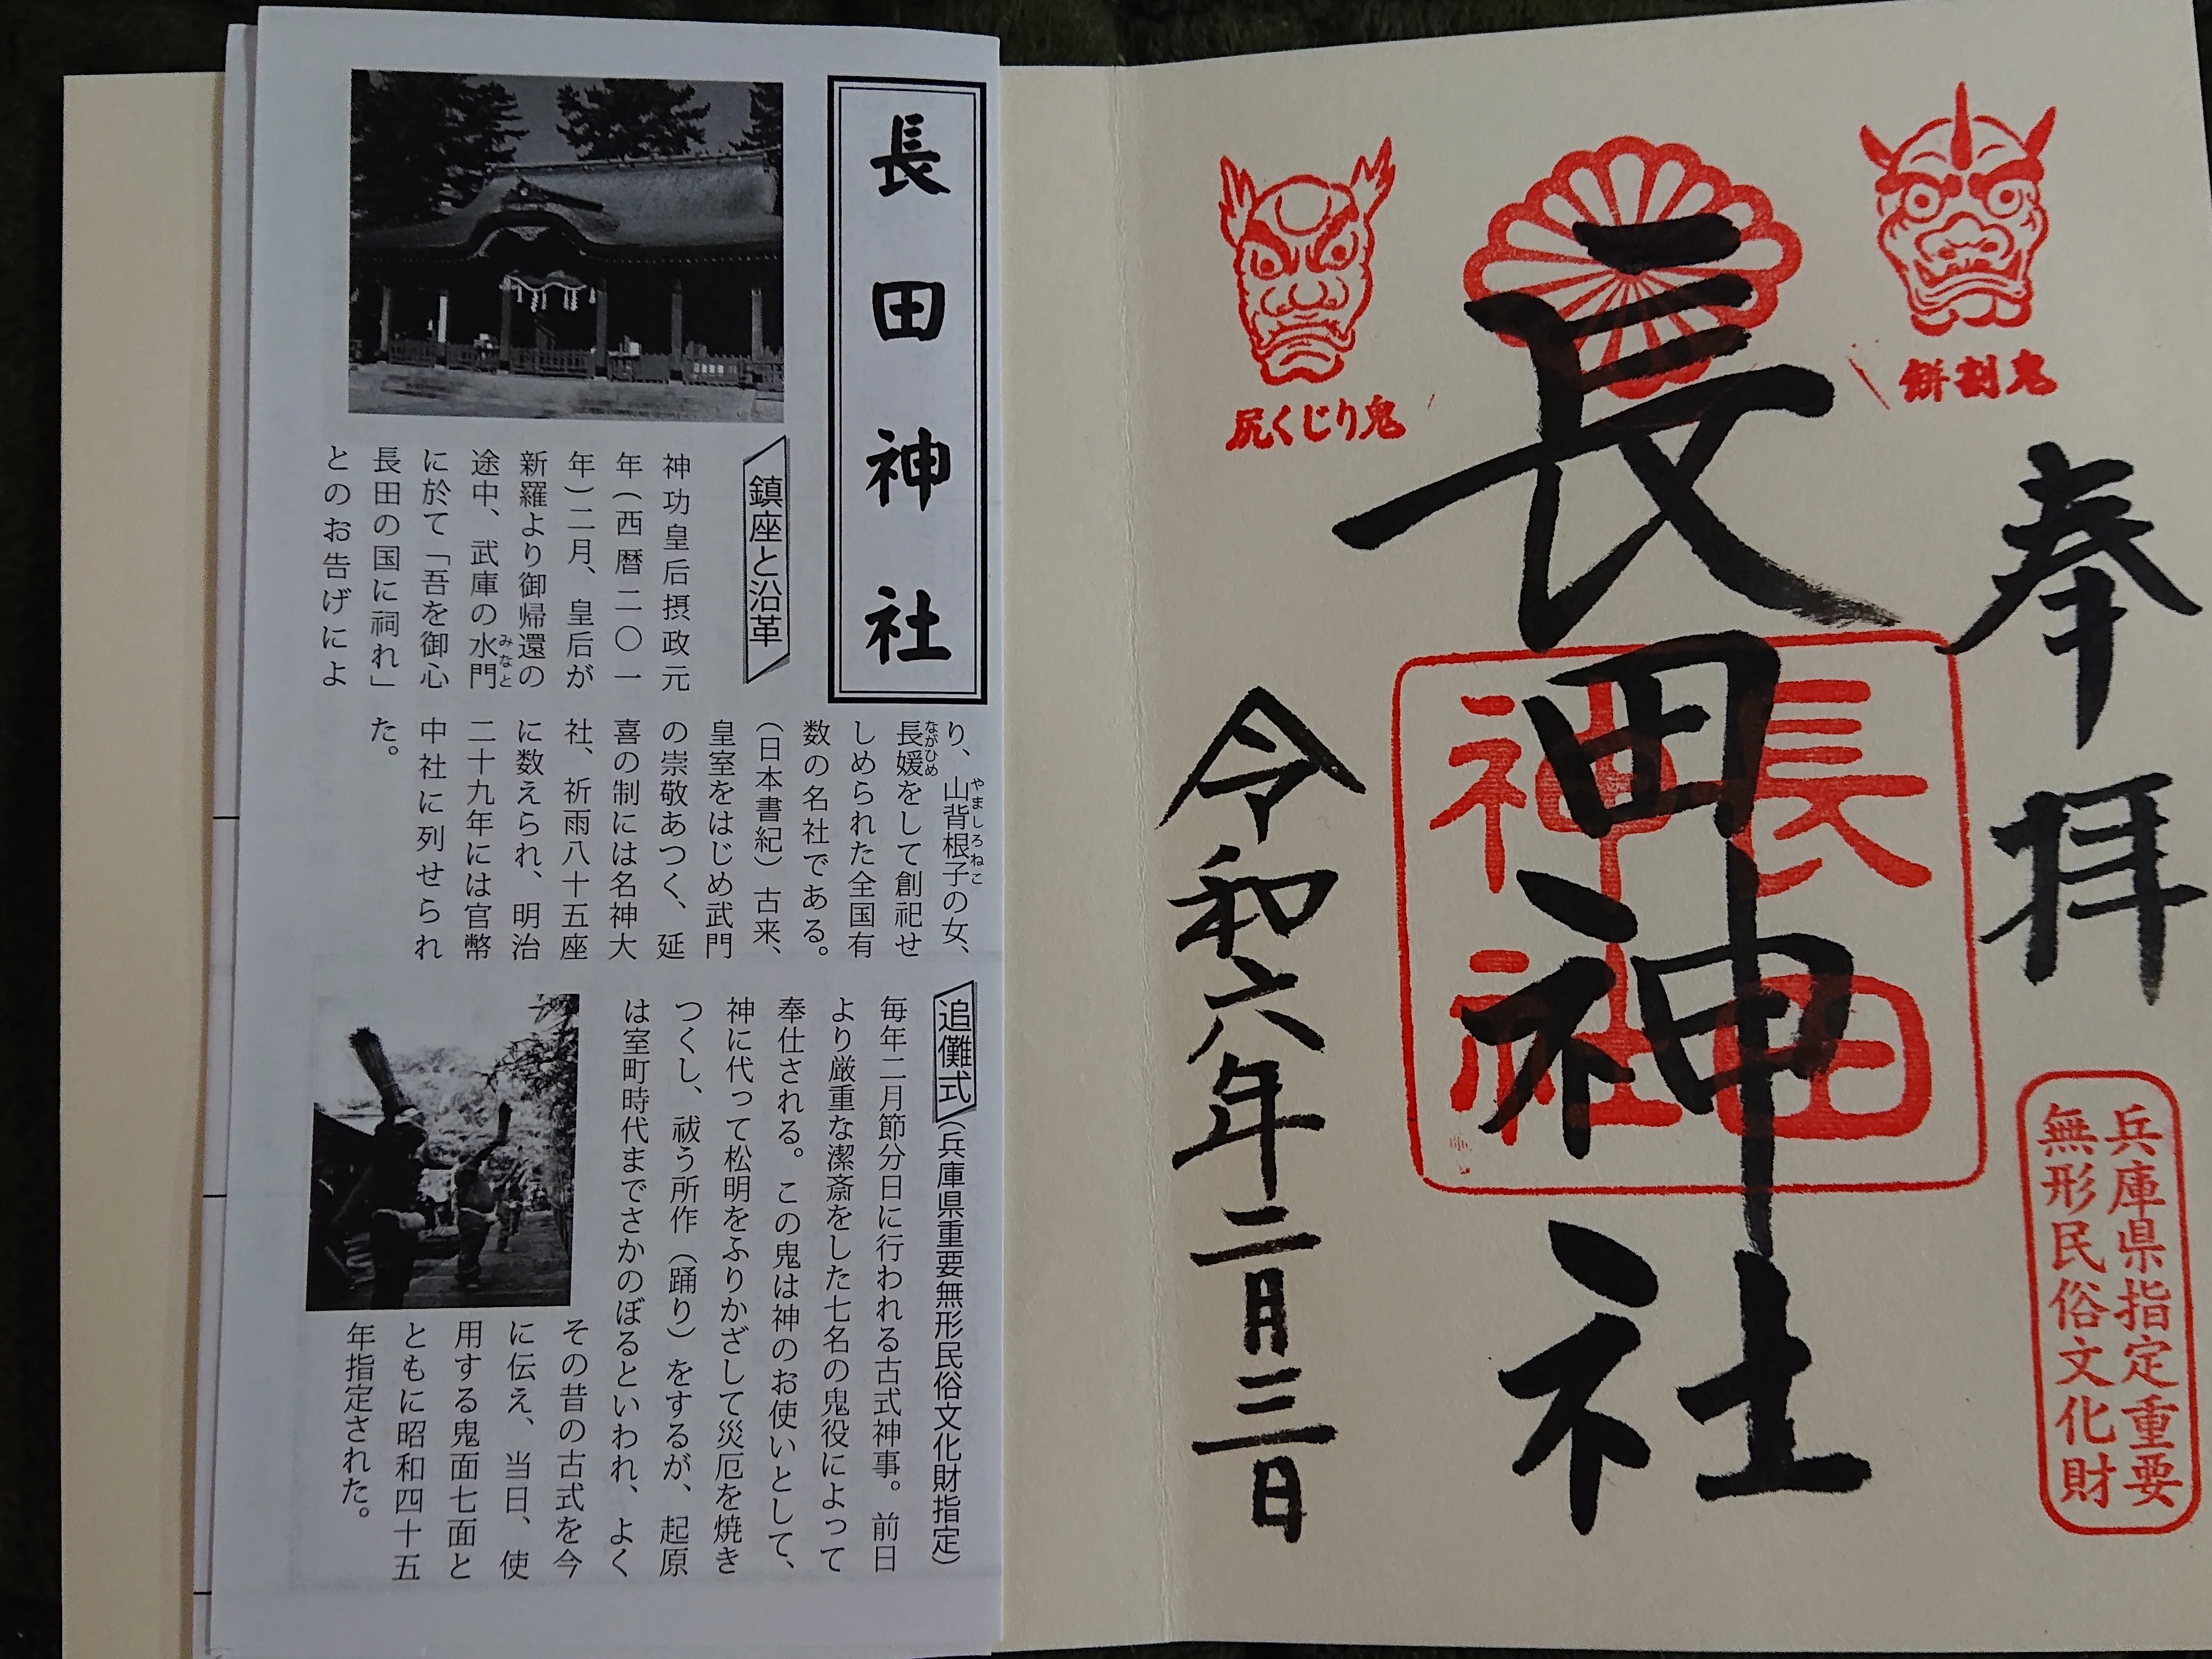 奉拝
兵庫県指定重要
無形民俗文化財
餅割鬼
長田神社
長田
神社
尻くじり鬼
令和六年二月三日
長田神社
鎮座と沿革
神功皇后摂政元
年(西暦二〇一
年)二月、皇后が
新羅より御帰還の
途中、武庫の水門
みなと
に於て「吾を御心
長田の国に祠れ」
とのお告げによ
り、山背根子の女、
やましろねこ
長媛をして創祀せ
ながひめ
しめられた全国有
数の名社である。
(日本書紀)古来、
皇室をはじめ武門
の崇敬あつく、延
喜の制には名神大
社、祈雨八十五座
に数えられ、明治
二十九年には官幣
中社に列せられ
た。
追儺式(兵庫県重要無形民俗文化財指定)
毎年二月節分日に行われる古式神事。前日
より厳重な潔斎をした七名の鬼役によって
奉仕される。この鬼は神のお使いとして、
神に代って松明をふりかざして災厄を焼き
つくし、祓う所作(踊り)をするが、起原
は室町時代までさかのぼるといわれ、よく
その昔の古式を今
に伝え、当日、使
用する鬼面七面と
ともに昭和四十五
年指定された。